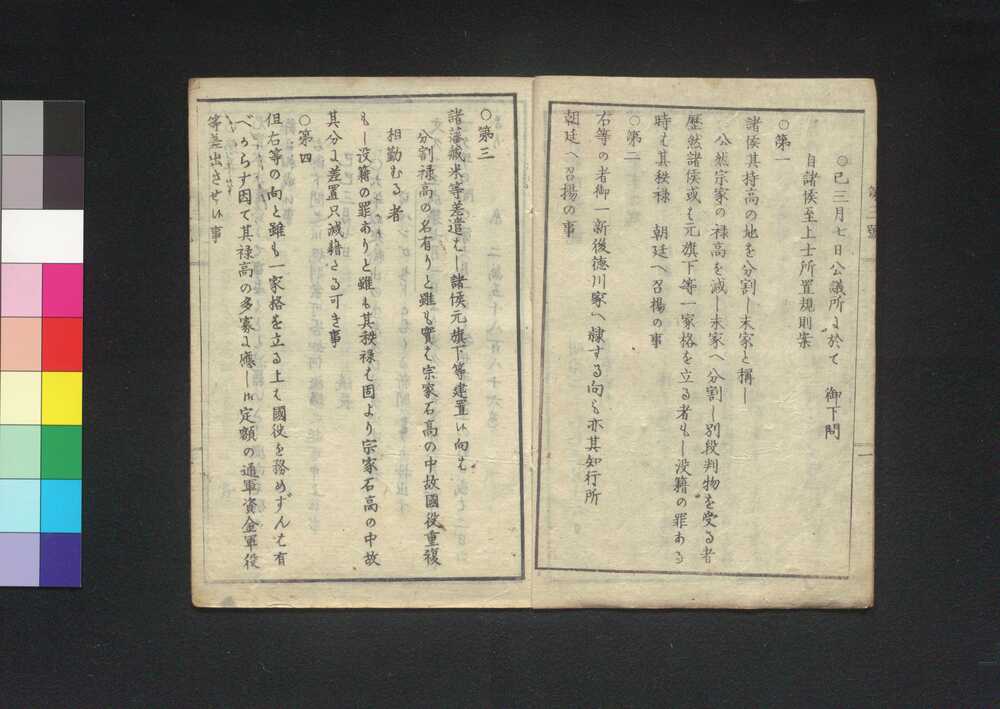 第三號
○已三月七日公議所ニ於て　御下問
自諸侯至上士所置規則案
○第一
諸侯其持高の地を分割し末家と稱し
公然宗家の禄高を減し末家へ分割し別段判物を受る者
歴然諸侯或も元旗下等一家格を立る者もし没籍の罪ある
時も其秩禄　朝廷へ召揚の事
○第二
右等の者御一新後徳川家へ隷する向も亦其知行所
朝廷へ召揚の事
一
○第三
諸藩藏米等差遣もし諸侯元旗下等建置い向も
分割禄高の名有りと雖も實も宗家石高の中故國役重複
相勤むる者
もし没籍の罪ありと雖も其秩禄も固より宗家石高の中故
其分も差置只減籍さる可き事
○第四
但右等の向と雖も一家格を立る上も國役を務めずんも有
べからす因て其禄高の多寡に應し定額の通軍資金軍役
等差出させい事